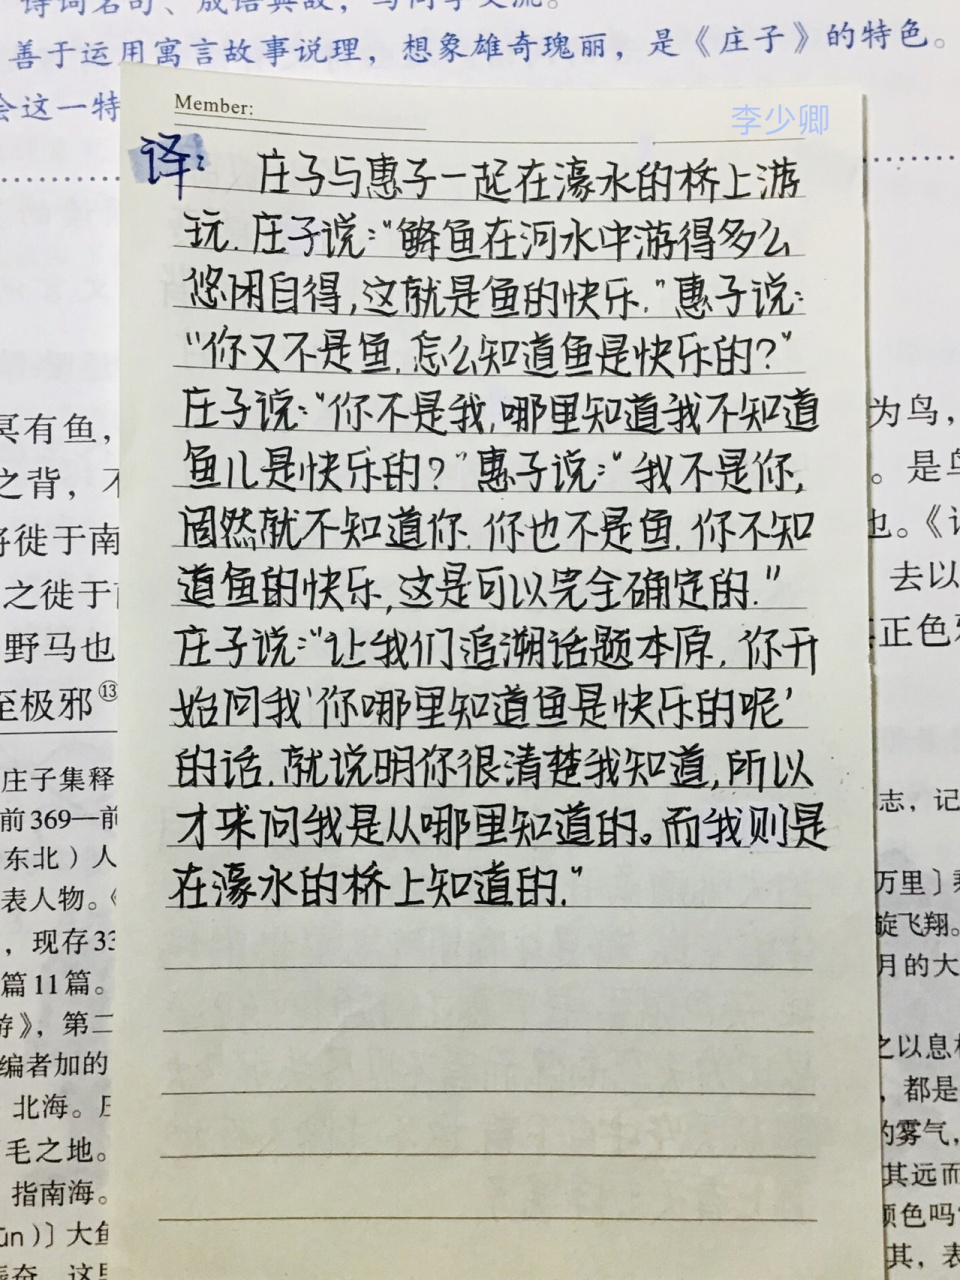 诗词名句、成语典故,与同学交流。
善于运用寓言故事说理,想象雄奇瑰丽,是《庄子》的特色。
会这一特
Member:
李少卿
译:
庄子与惠子一起在濠水的桥上游
玩.庄子说:"鯈鱼在河水中游得多么
悠闲自得,这就是鱼的快乐."惠子说:
"你又不是鱼.怎么知道鱼是快乐的?"
庄子说:"你不是我,哪里知道我不知道
鱼儿是快乐的?"惠子说:"我不是你,
固然就不知道你.你也不是鱼.你不知
道鱼的快乐,这是可以完全确定的."
庄子说:"让我们追溯话题本原,你开
始问我'你哪里知道鱼是快乐的呢'
的话.就说明你很清楚我知道,所以
才来问我是从哪里知道的。而我则是
在濠水的桥上知道的."
冥有鱼,
之背,不
将徙于南
之徙于南
野马也
至极邪⑬
庄子集释
前369—前
东北)人
表人物。《
,现存33
篇11篇。
游》,第二
编者加的
北海。
毛之地。
指南海。
ūn)〕大鱼
为鸟,
。是鸟
也。《
去以
正色邪
志,记
万里〕
旋飞翔。
月的大
之以息相
,都是
的雾气,
其远而
颜色吗
其,表